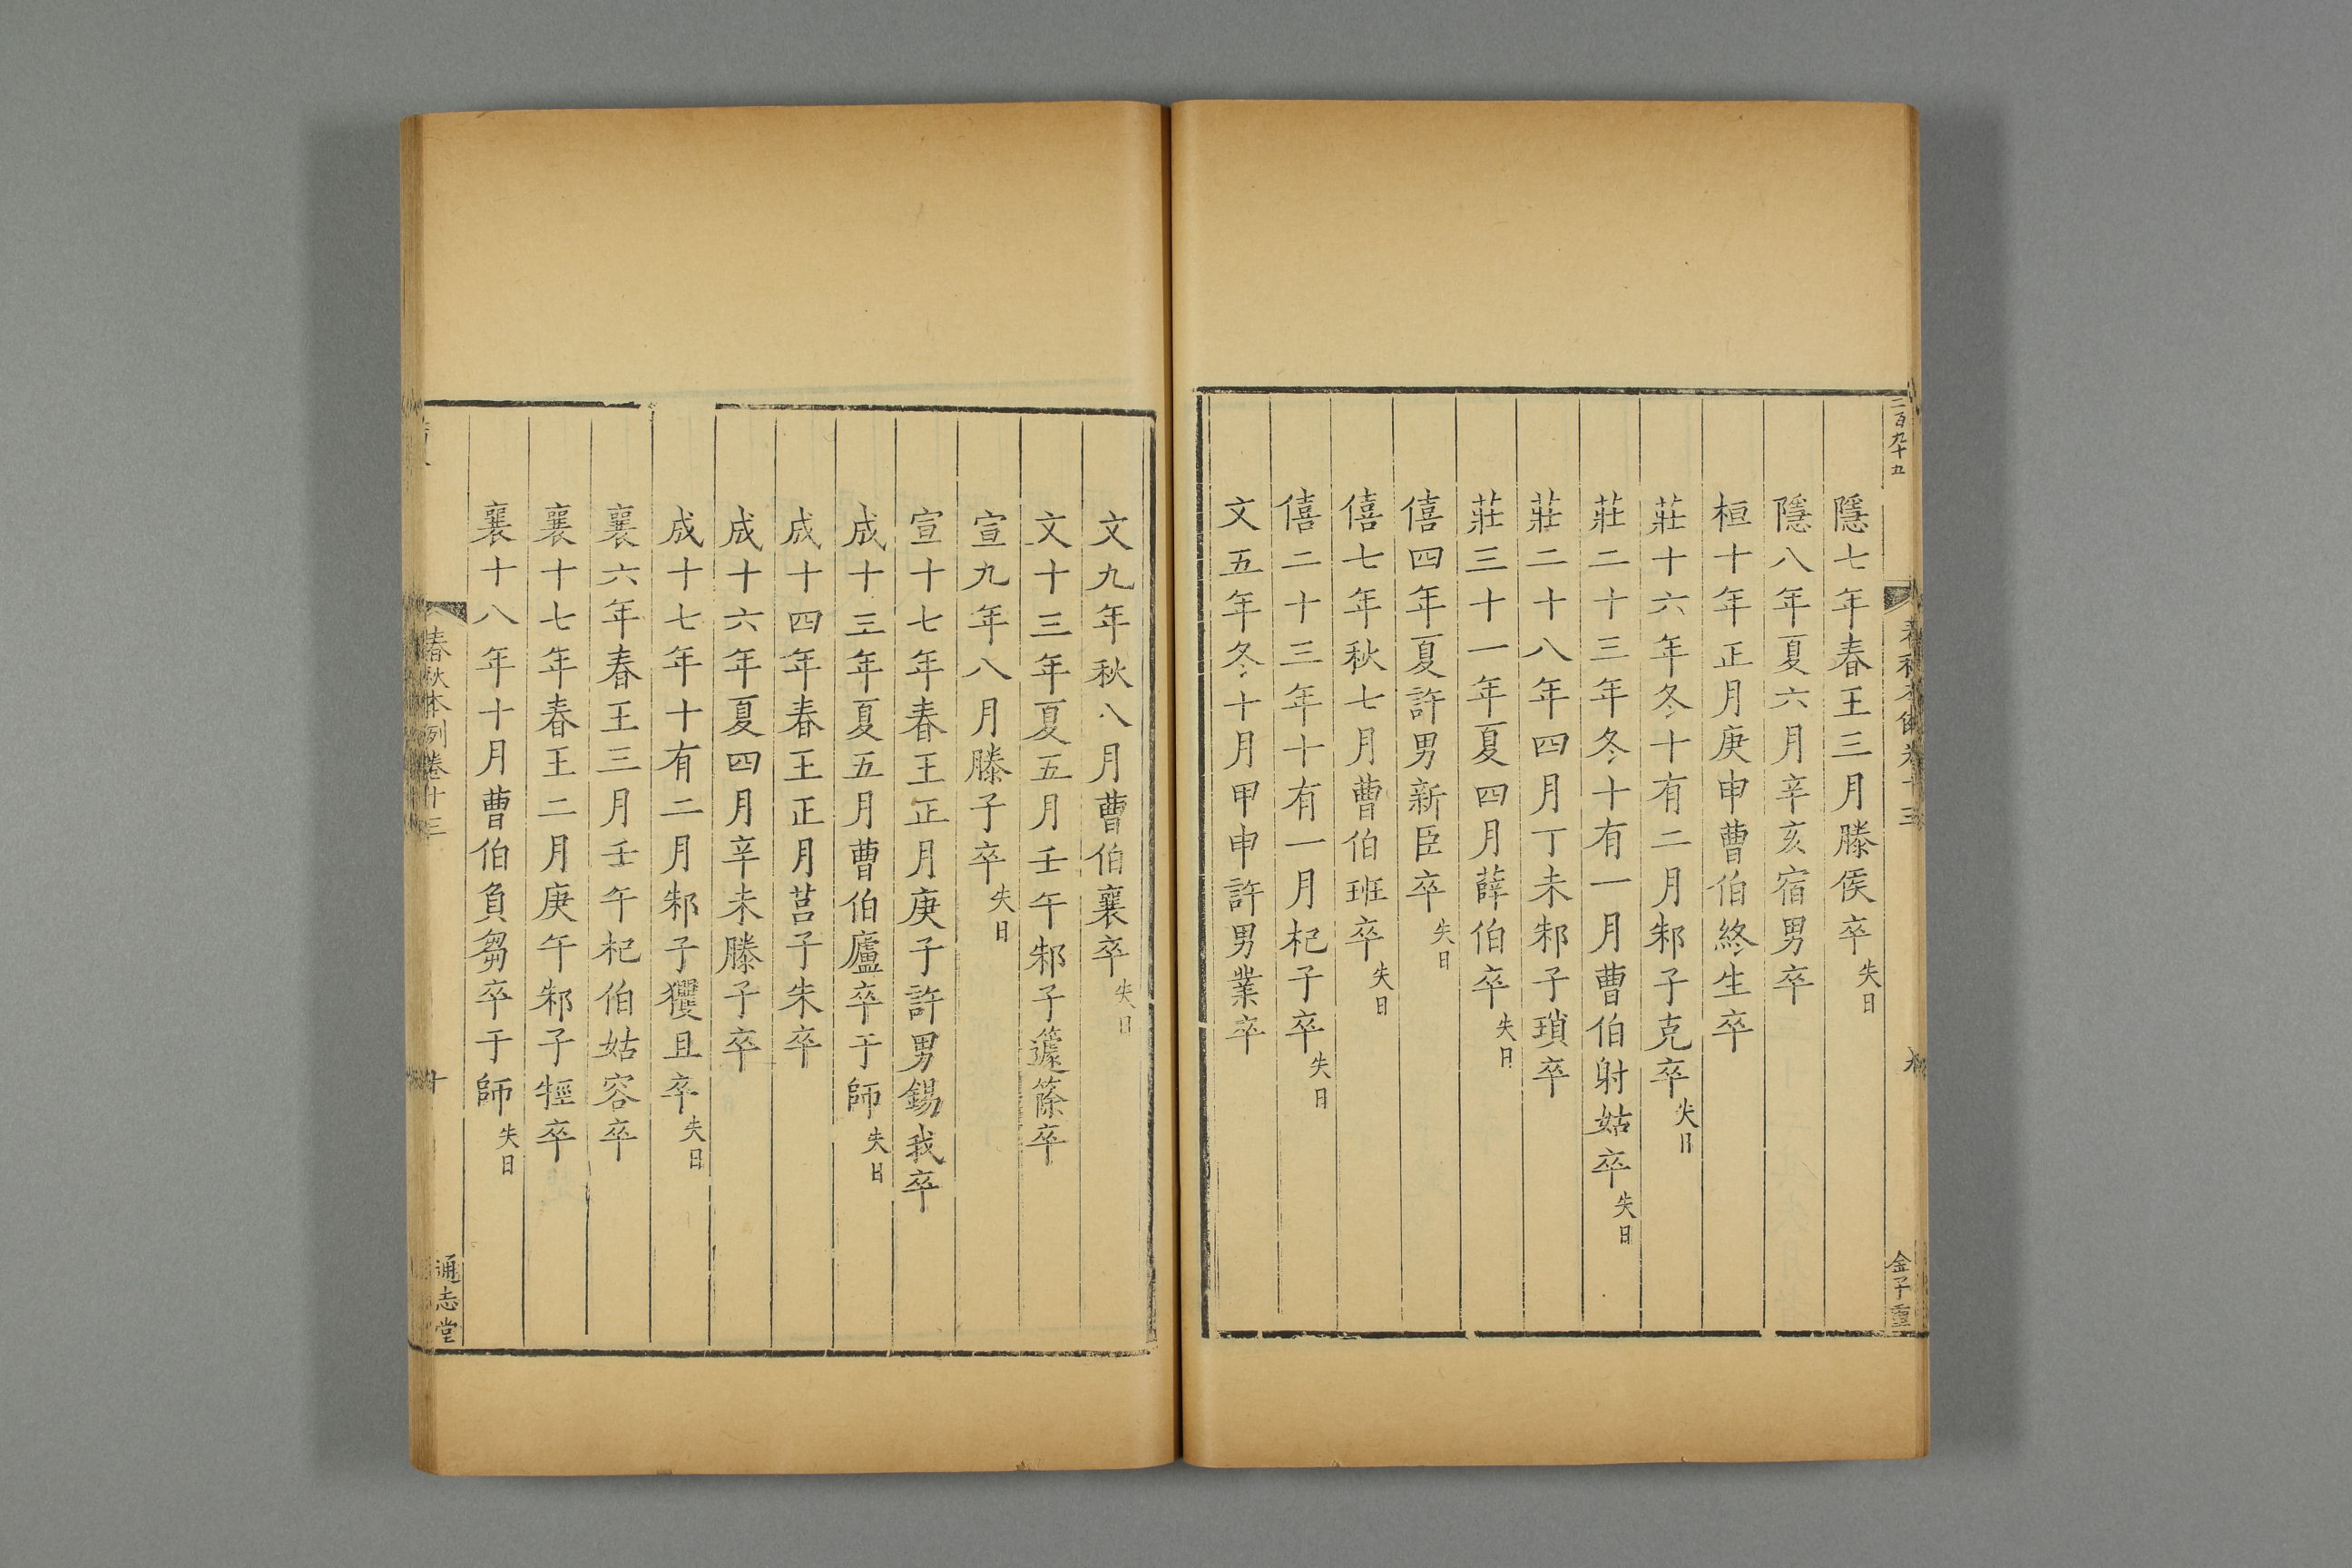 二百九十五
春秋本例卷十三
九
金子重
隱七年春王三月滕侯卒失日
隱八年夏六月辛亥宿男卒
桓十年正月庚申曹伯終生卒
莊十六年冬十有二月邾子克卒失日
莊二十三年冬十有一月曹伯射姑卒失日
莊二十八年四月丁未邾子瑣卒
莊三十一年夏四月薛伯卒失日
僖四年夏許男新臣卒失日
僖七年秋七月曹伯班卒失日
僖二十三年十有一月杞子卒失日
文五年冬十月甲申許男業卒
文九年秋八月曹伯襄卒失日
文十三年夏五月壬午邾子籧篨卒
宣九年八月滕子卒失日
宣十七年春王正月庚子許男錫我卒
成十三年夏五月曹伯廬卒于師失日
成十四年春王正月莒子朱卒
成十六年夏四月辛未滕子卒
成十七年十有二月邾子玃且卒失日
襄六年春王三月壬午杞伯姑容卒
襄十七年春王二月庚午邾子牼卒
襄十八年十月曹伯負芻卒于師失日
春秋本例卷十三
十
通志堂